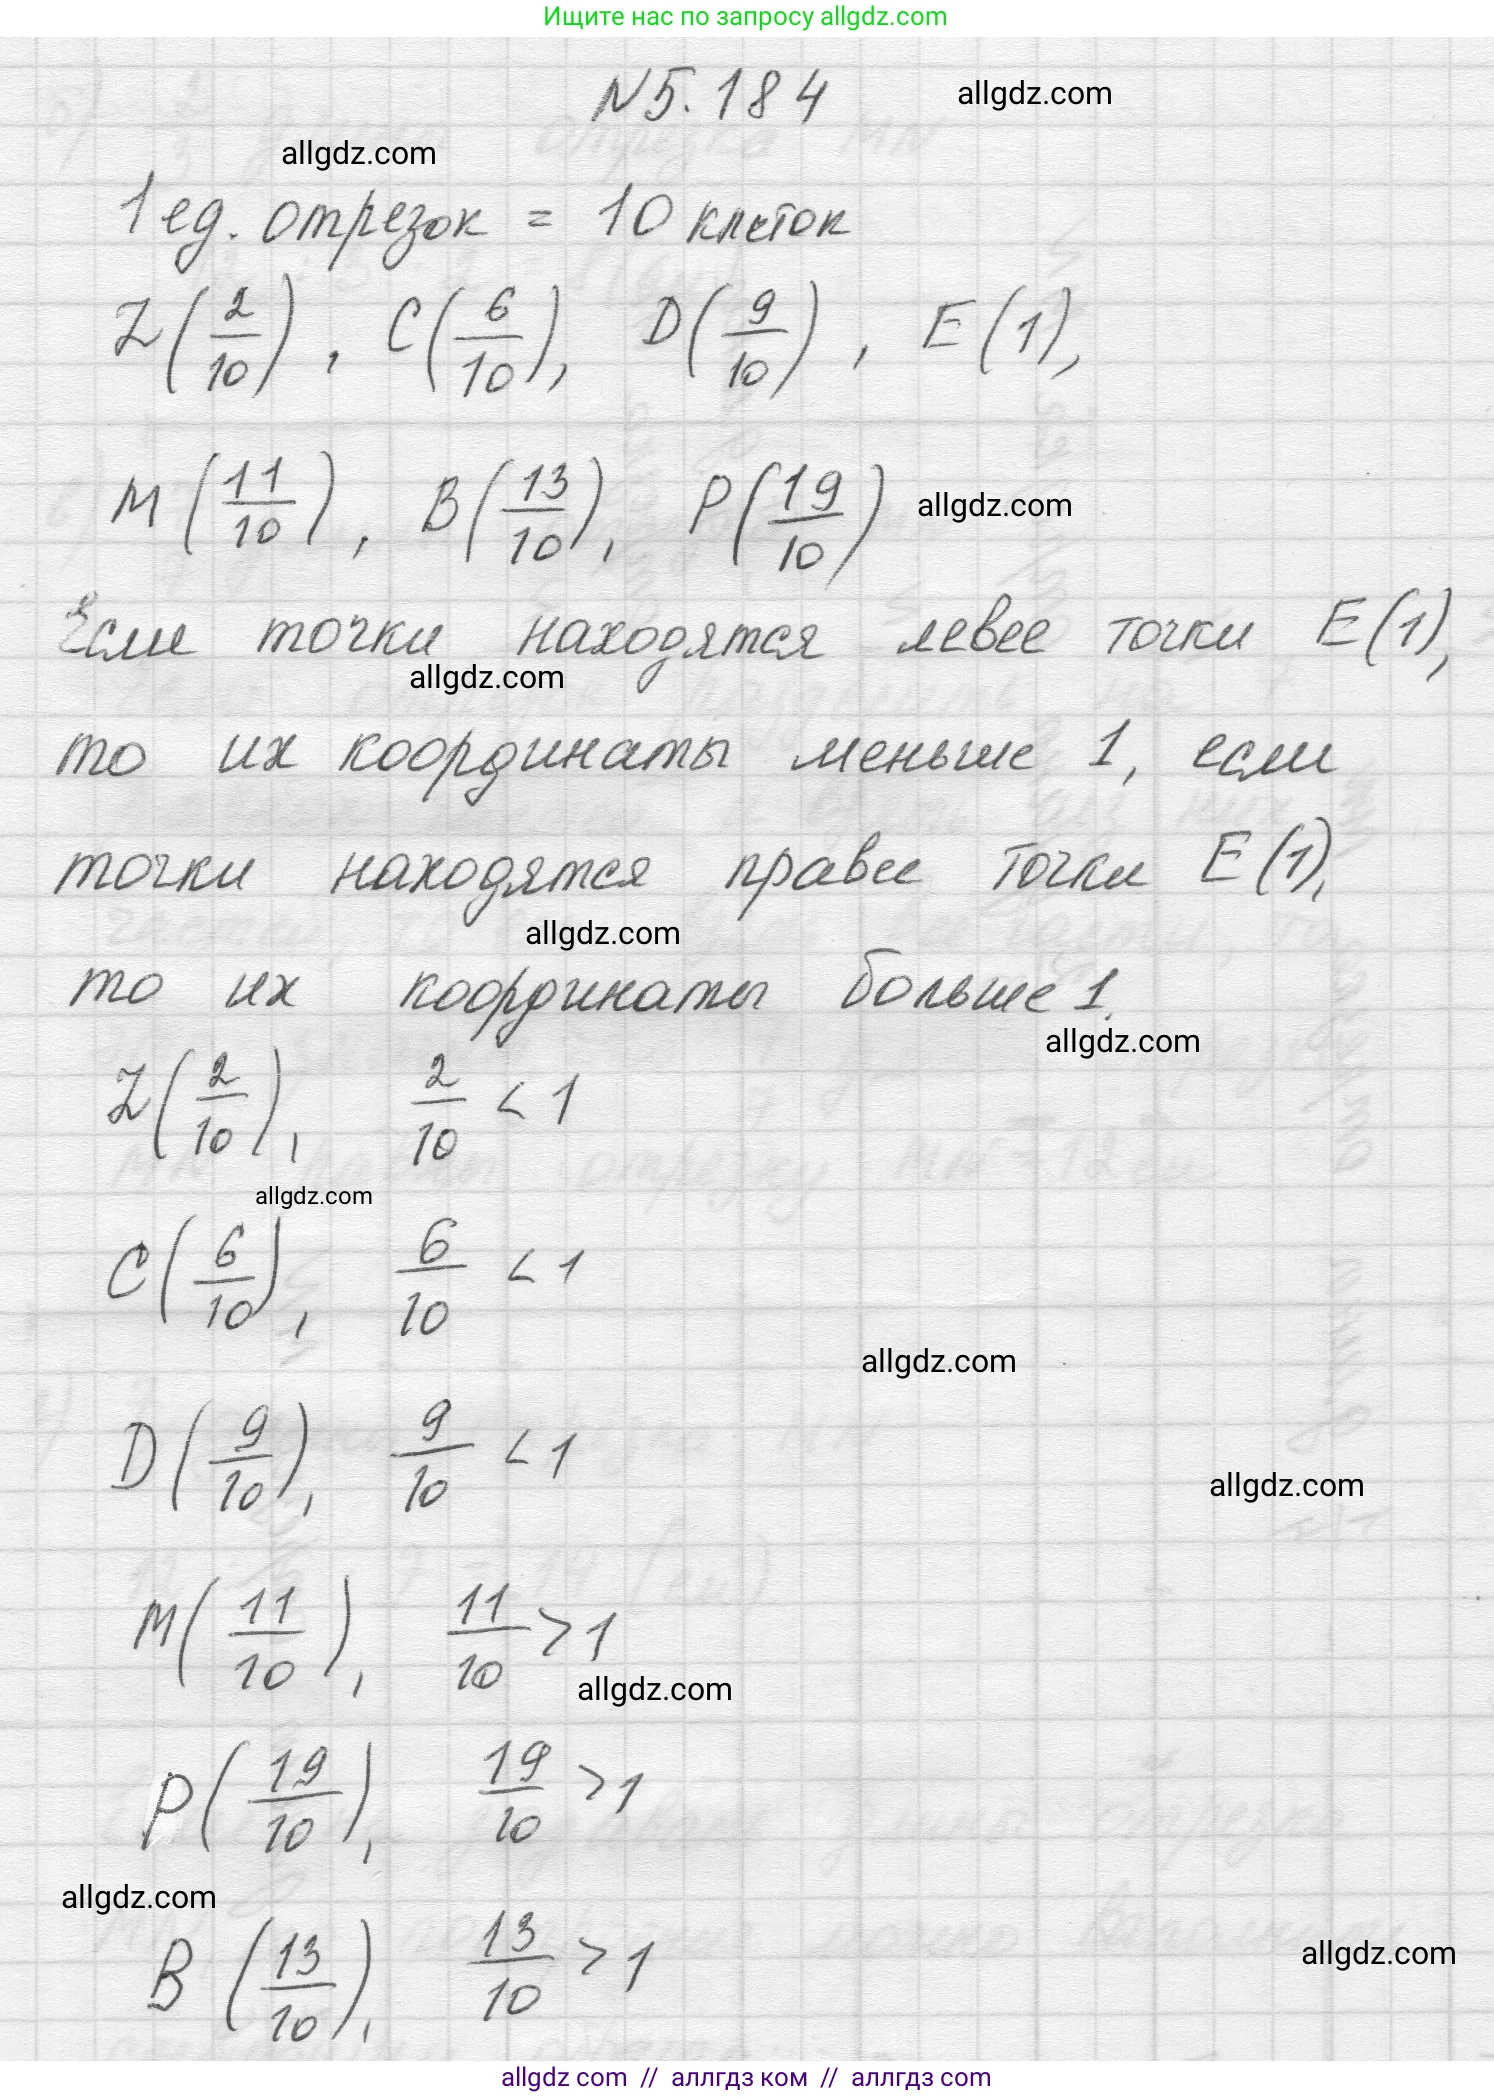 Ищите нас по запросу allgdz.com
N 5.184
allgdz.com
allgdz.com
1 ед. отрезок = 10 клеток
Z(2/10), C(6/10), D(9/10), E(1),
M(11/10), B(13/10), P(19/10)
allgdz.com
Если точки находятся левее точки E(1),
allgdz.com
то их координаты меньше 1, если
точки находятся правее точки E(1),
allgdz.com
то их координаты больше 1.
allgdz.com
Z(2/10), 2/10 < 1
allgdz.com
C(6/10), 6/10 < 1
allgdz.com
D(9/10), 9/10 < 1
allgdz.com
M(11/10), 11/10 > 1
allgdz.com
P(19/10), 19/10 > 1
allgdz.com
B(13/10), 13/10 > 1
allgdz.com
allgdz com // аллгдз ком // аллгдз com